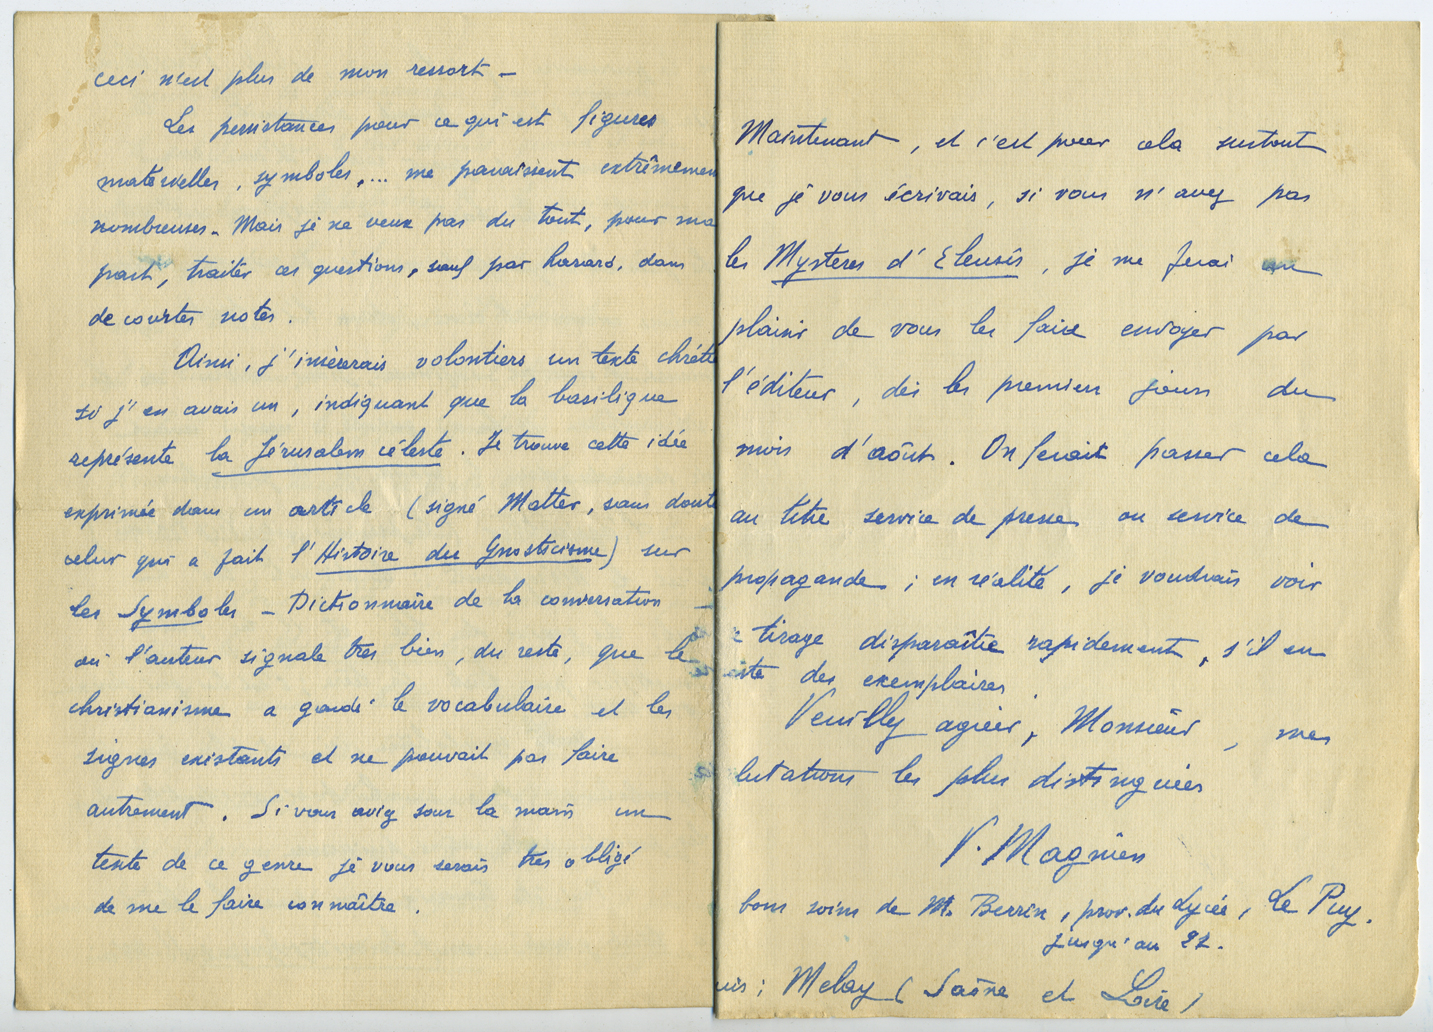 ceci n'est plus de mon ressort –
Les persistances pour ce qui est figures
matérielles, symboles,... me paraissent extrêmemen
nombreuses. Mais je ne veux pas du tout, pour ma
part, traiter ces questions, sauf par hasard, dans
de courtes notes.
Ainsi, j'insèrerais volontiers un texte chréti
si j'en avais un, indiquant que la basilique
représente la Jérusalem céleste. Je trouve cette idée
exprimée dans un article (signé Matter, sans doute
celui qui a fait l'Histoire du Gnosticisme) sur
les Symboles – Dictionnaire de la conversation
où l'auteur signale très bien, du reste, que le
christianisme a gardé le vocabulaire et les
signes existants et ne pouvait pas faire
autrement. Si vous aviez sous la main un
texte de ce genre je vous serais très obligé
de me le faire connaître.
Maintenant, et c'est pour cela surtout
que je vous écrivais, si vous n'avez pas
les Mystères d'Eleusis, je me ferai un
plaisir de vous les faire envoyer par
l'éditeur, dès les premiers jours du
mois d'août. On ferait passer cela
au titre service de presse ou service de
propagande ; en réalité, je voudrais voir
e tirage disparaître rapidement, s'il en
ste des exemplaires.
Veuillez agréer, Monsieur, mes
lutations les plus distinguées
V. Magnien
bons soins de M. Berrin, prov. du Lycée, Le Puy.
jusqu'au 22.
uis ; Melay (Saône et Loire)